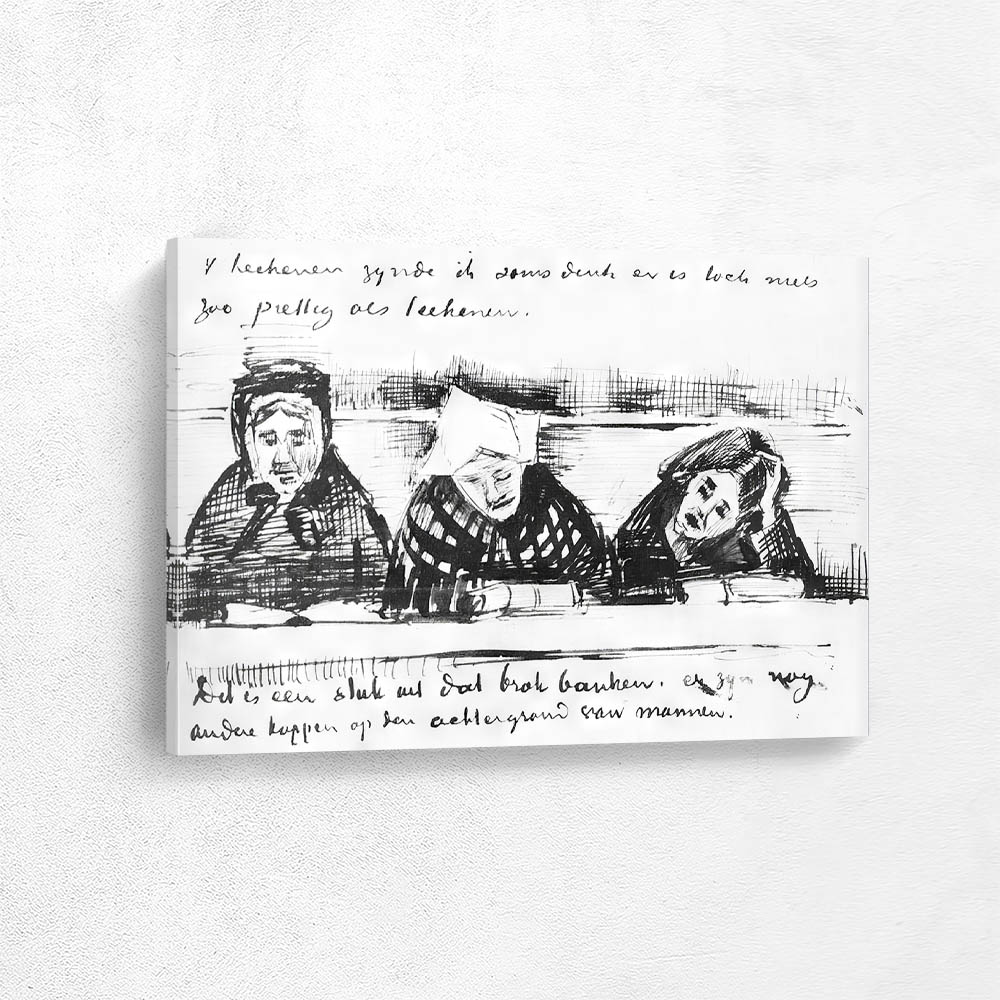 't teekenen zynde ik soms denk er is toch niets
zoo prettig als teekenen.
Dit is een stuk uit dat brok banken. er zyn nog
andere koppen op den achtergrond van mannen.